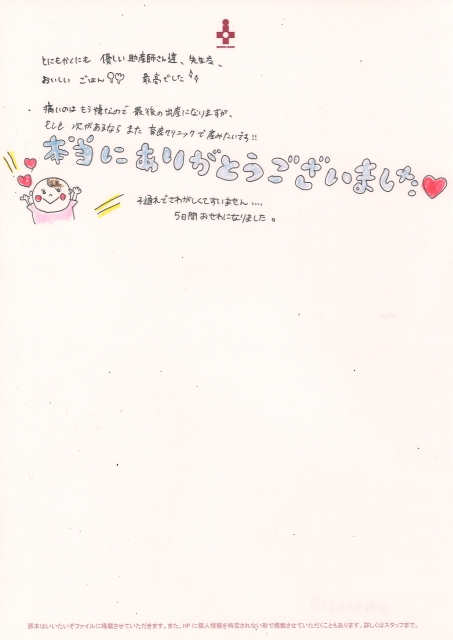 とにもかくにも 優しい助産師さん達、先生方、
おいしい ごはん 最高でした
・ 痛いのはもう嫌なので 最後の出産になりますが、
もしも 次があるなら また クリニックで産みたいです!!
本当にありがとうございました
子連れでさわがしくてすいません....
5日間おせわになりました。
原本はいいたいぞファイルに掲載させていただきます。また、HPに個人情報を特定されない形で掲載させていただくこともあります。詳しくはスタッフまで。